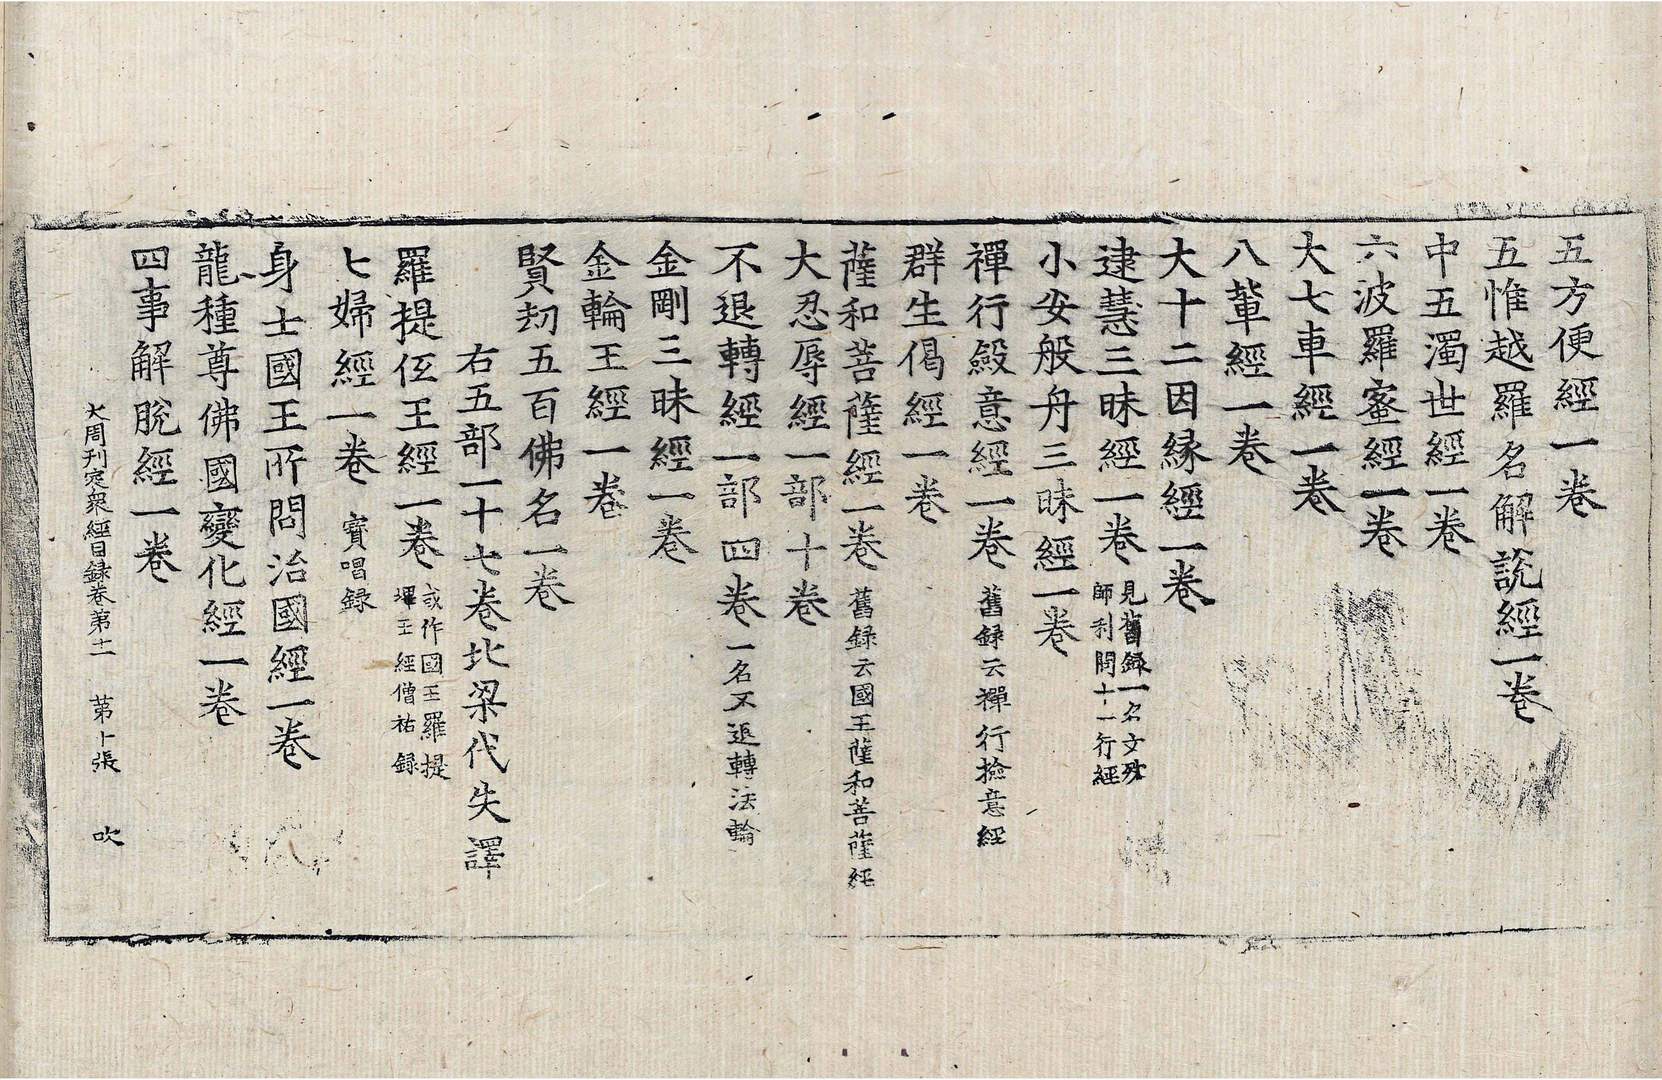 五方便經一卷
五惟越羅名解說經一卷
中五濁世經一卷
六波羅蜜經一卷
大七車經一卷
八軰經一卷
大十二因緣經一卷
逮慧三昧經一卷 見舊錄一名文殊
師利問十一行經
小安般舟三昧經一卷
禪行斂意經一卷 舊錄云禪行撿意經
群生偈經一卷
薩和菩薩經一卷 舊錄云國王薩和菩薩經
大忍辱經一部十卷
不退轉經一部四卷 一名不退轉法輪
金剛三昧經一卷
金輪王經一卷
賢劫五百佛名一卷
右五部一十七卷北梁代失譯
羅提伾王經一卷 或作國王羅提
埋王經僧祐錄
七婦經一卷 寶唱錄
身士國王所問治國經一卷
龍種尊佛國變化經一卷
四事解脫經一卷
大周刊定衆經目錄卷第十一 第卜張 吹